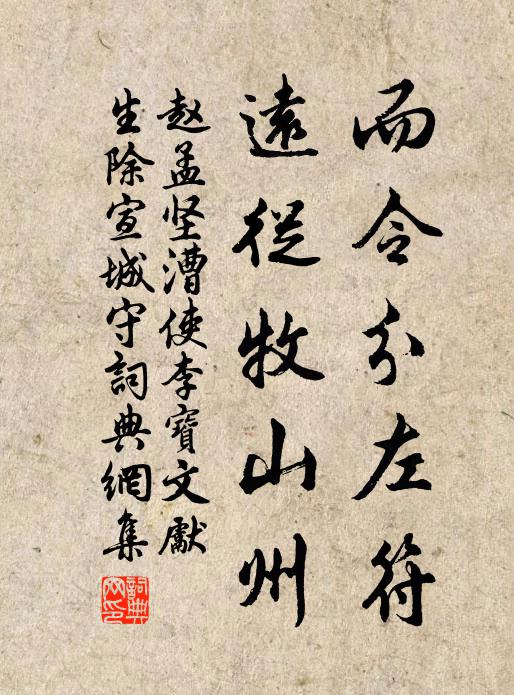 而令分左符
遠從牧山州
赵孟坚漕使李寶文獻
生除宣城守詞典網集
詞典網印